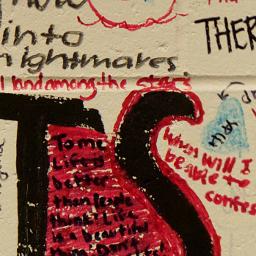 now
THER
into
nightmares
land among the stars
To me
Life is
better
than people
think! Life
is a beautiful
when will I
be able to
confess